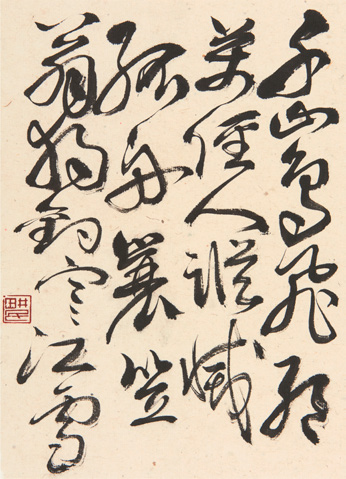 千山鳥飛絕
萬徑人蹤滅
孤舟蓑笠
翁獨釣寒江雪